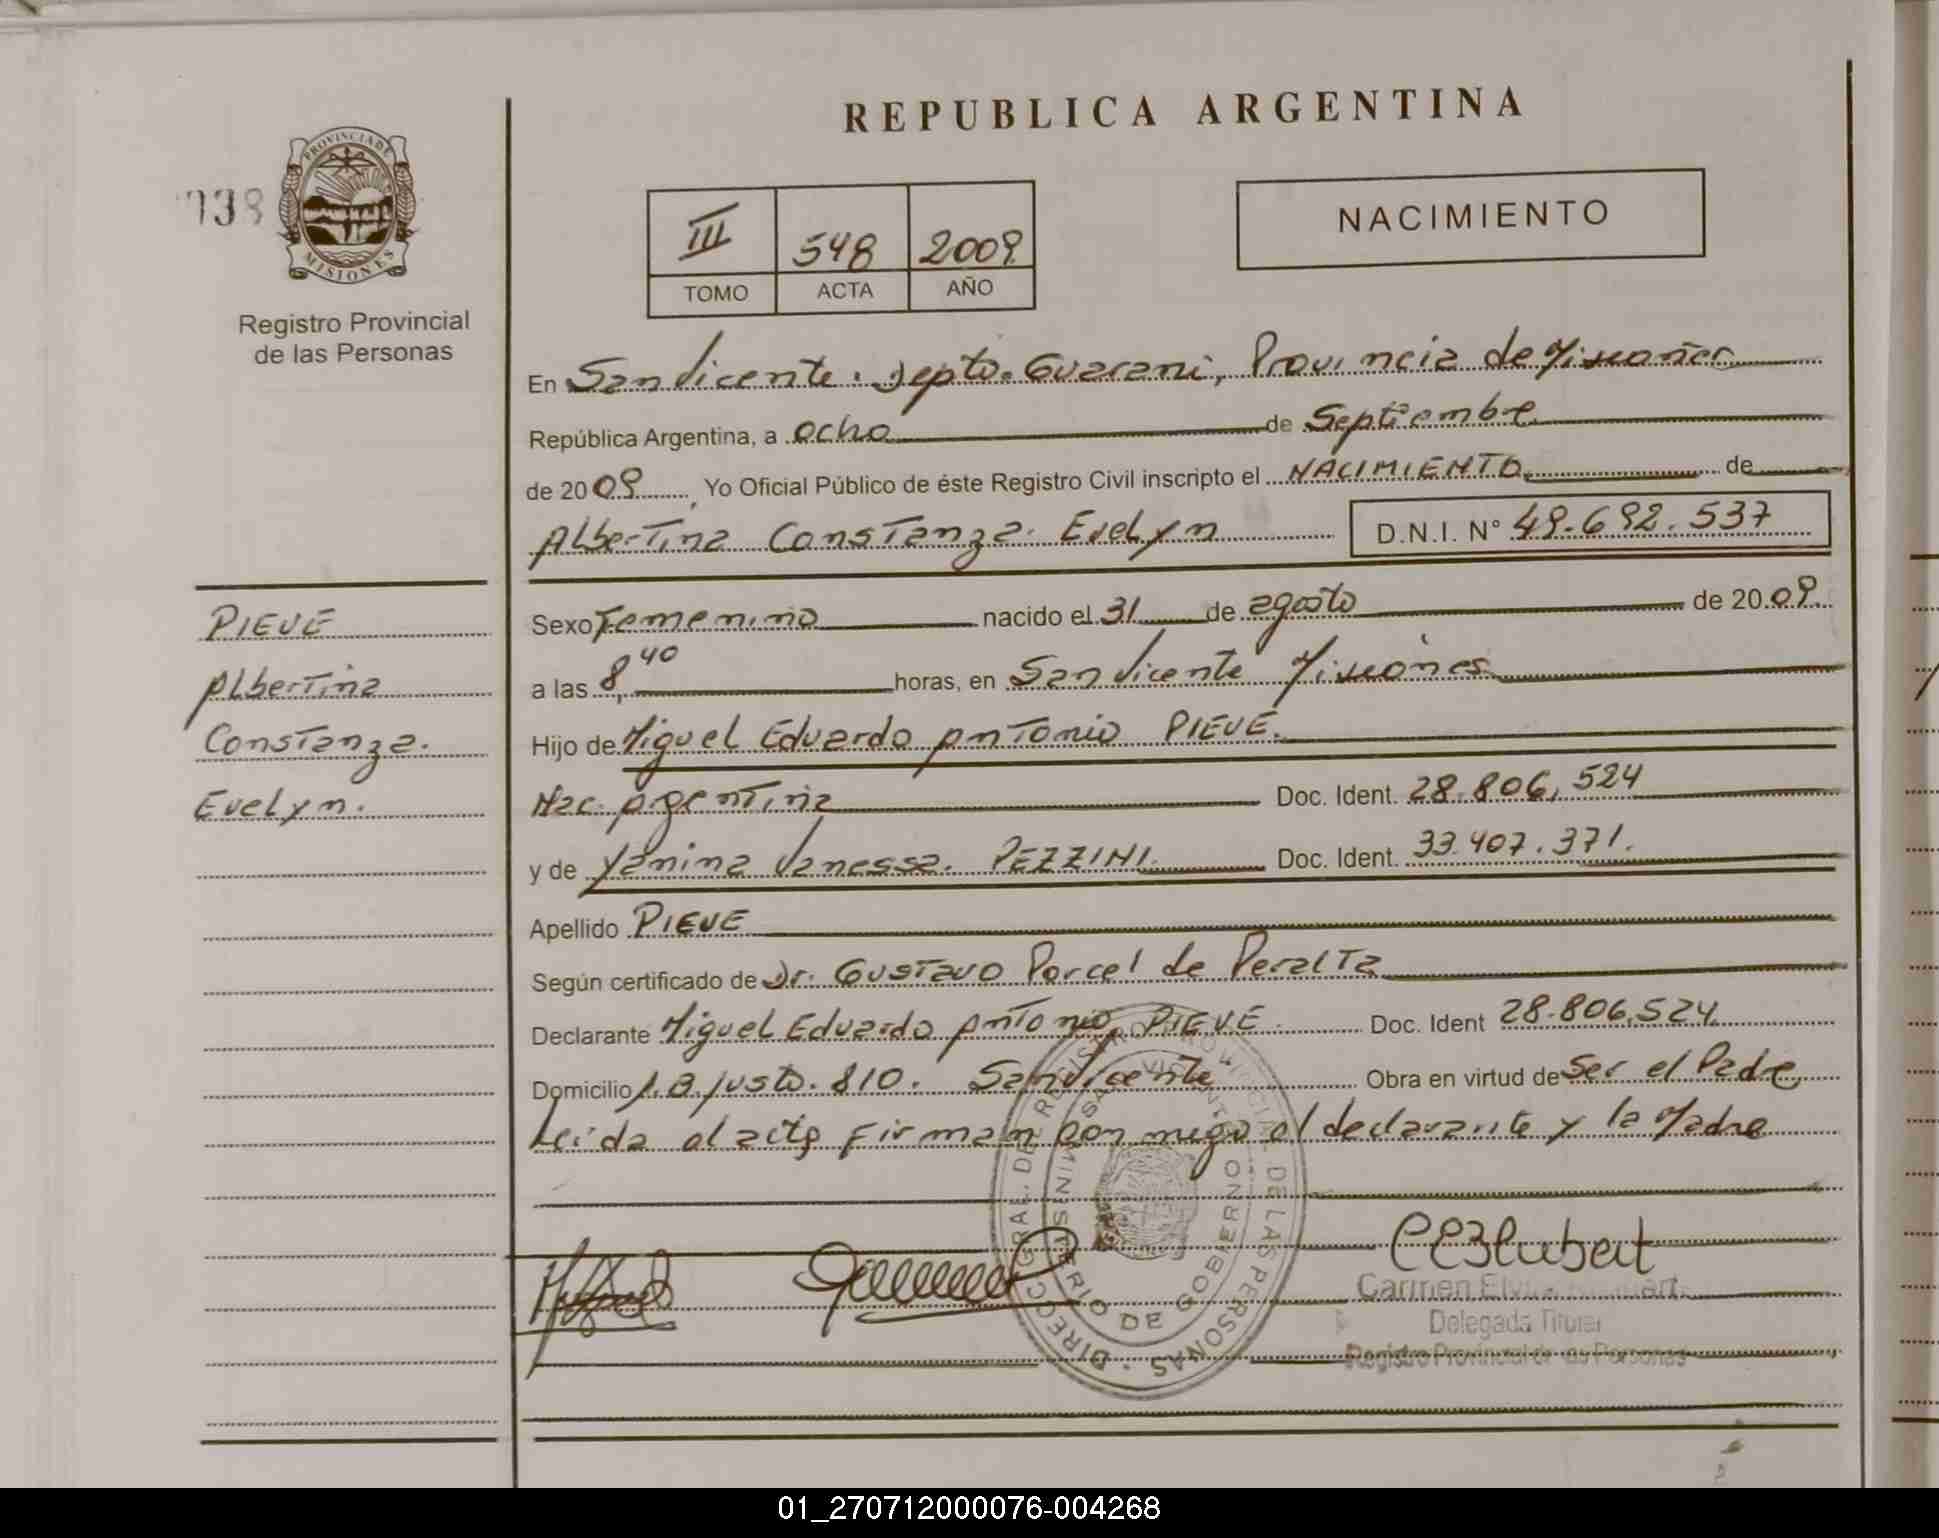 REPUBLICA ARGENTINA
738
PROVINCIA DE
MISIONES
Registro Provincial
de las Personas
III 548 2009
TOMO ACTA AÑO
NACIMIENTO
En San Vicente. Depto. Guarani, Provincia de Misiones
República Argentina, a ocho de Septiembre
de 2009, Yo Oficial Público de éste Registro Civil inscripto el NACIMIENTO de
Albertina Constanza Evelyn D.N.I. N° 49.692.537
PIEVE
Albertina
Constanza.
Evelyn.
Sexo Femenino nacido el 31 de agosto de 2009.
a las 8,40 horas, en San Vicente Misiones
Hijo de Miguel Eduardo Antonio PIEVE.
Nac. Argentina Doc. Ident. 28.806,524
y de Yanina Vanessa. PEZZINI. Doc. Ident. 33.407.371.
Apellido PIEVE
Según certificado de Dr. Gustavo Porcel de Peralta
Declarante Miguel Eduardo Antonio PIEVE Doc. Ident 28.806,524
Domicilio J.B. Justo. 810. San Vicente Obra en virtud de Ser el Padre
Leida el acta Firman conmigo el declarante y la Madre
DIRECC. GRAL. DE REGISTRO PROVINCIAL DE LAS PERSONAS
MINISTERIO DE GOBIERNO
SAN VICENTE
Carmen
Delegada Titular
Registro Provincial de las Personas
01_270712000076-004268